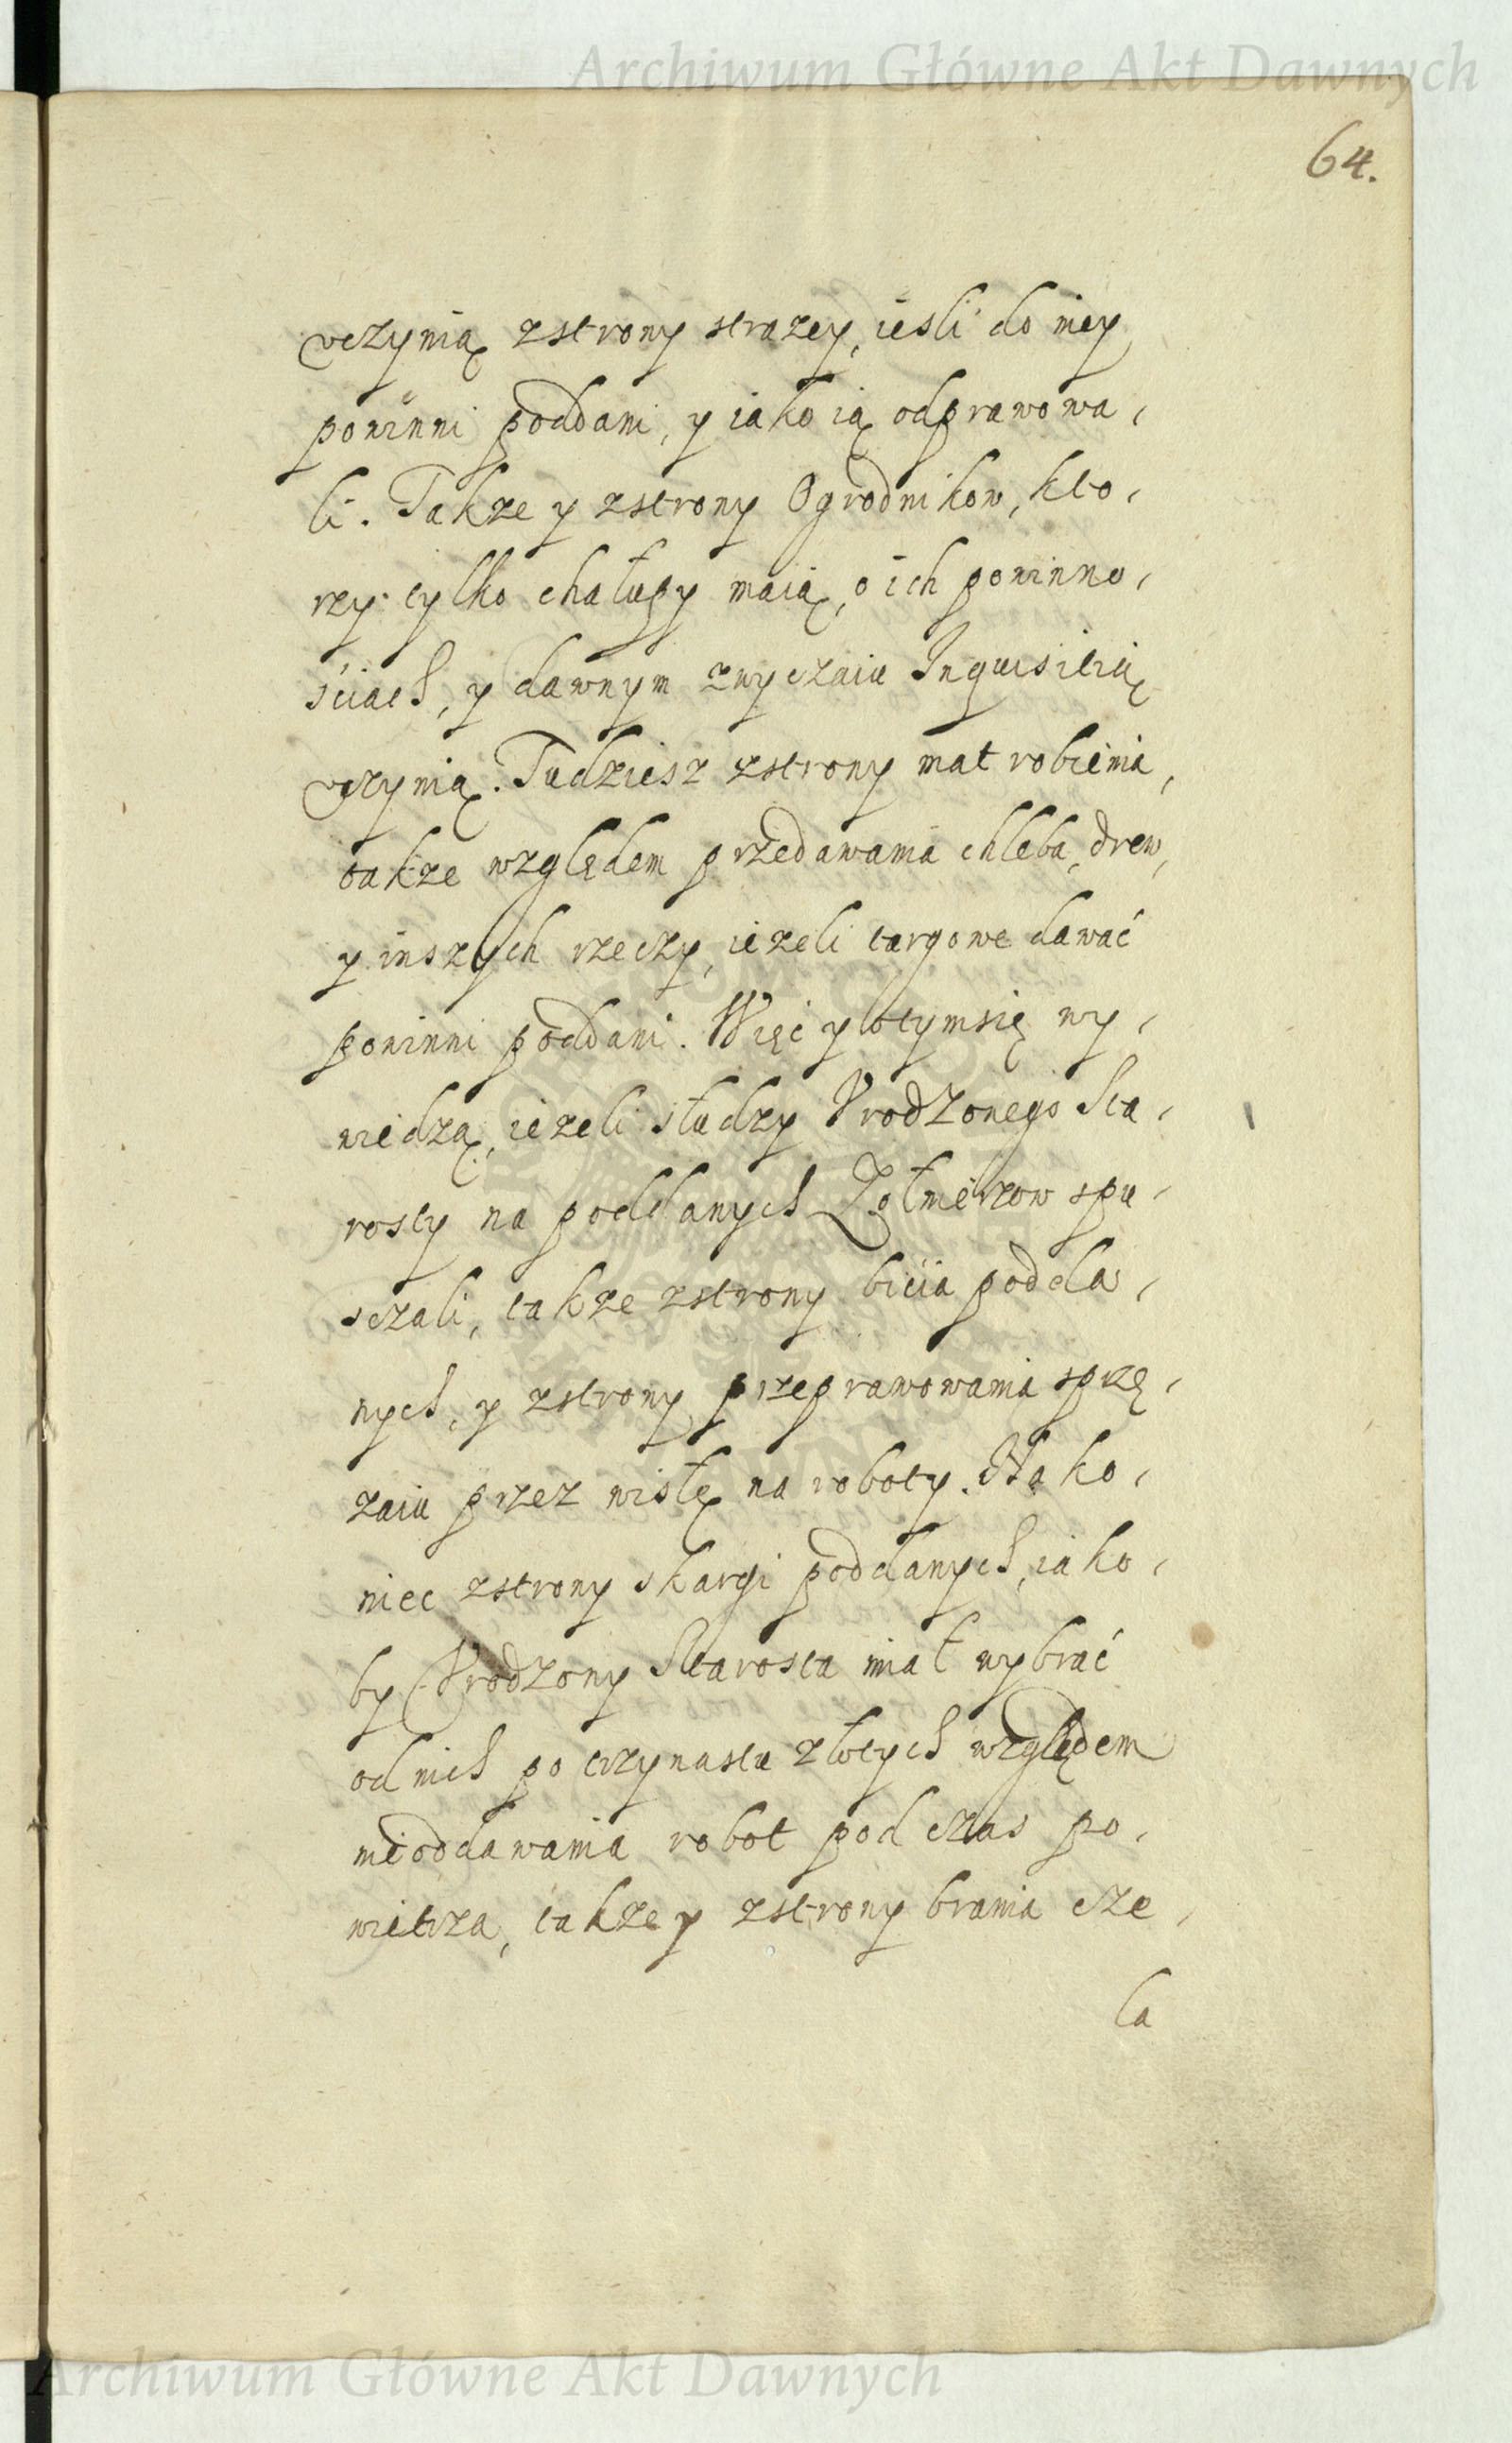 Archiwum Główne Akt Dawnych
64.
vczynią zstrony strazey, iesli do niey
powinni poddani, y iako ią odprawowa,
li. Takze y zstrony Ogrodnikow, kto,
rzy tylko chałupy maią, o ich powinno,
ściach, y dawnym zwyczaiu Inquisitią
vczynią. Tudziesz zstrony mat robienia,
takze względem przedawania chleba, drew,
y inszych rzeczy, ieżeli targowe dawać
powinni poddani. Więc y otym się wy,
wiedzą, ieżeli słudzy Vrodzonego Sta,
rosty na poddanych Zołnierzow spu,
sczali, takze zstrony bicia podda,
nych, y zstrony przeprawowania sprzę,
zaiu przez wisłę na roboty. Na ko,
niec zstrony skargi poddanych, iako,
by Vrodzony Starosta miał wybrać
od nich po trzynastu złotych względem
nieoddawania robot pod czas po,
wietrza, takze y zstrony brania cze,
la
Archiwum Główne Akt Dawnych